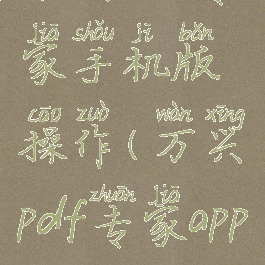 jiā shǒu jī bǎn
家手机版
cāo zuò wàn xīng
操作(万兴
zhuān jiā
pdf专家app